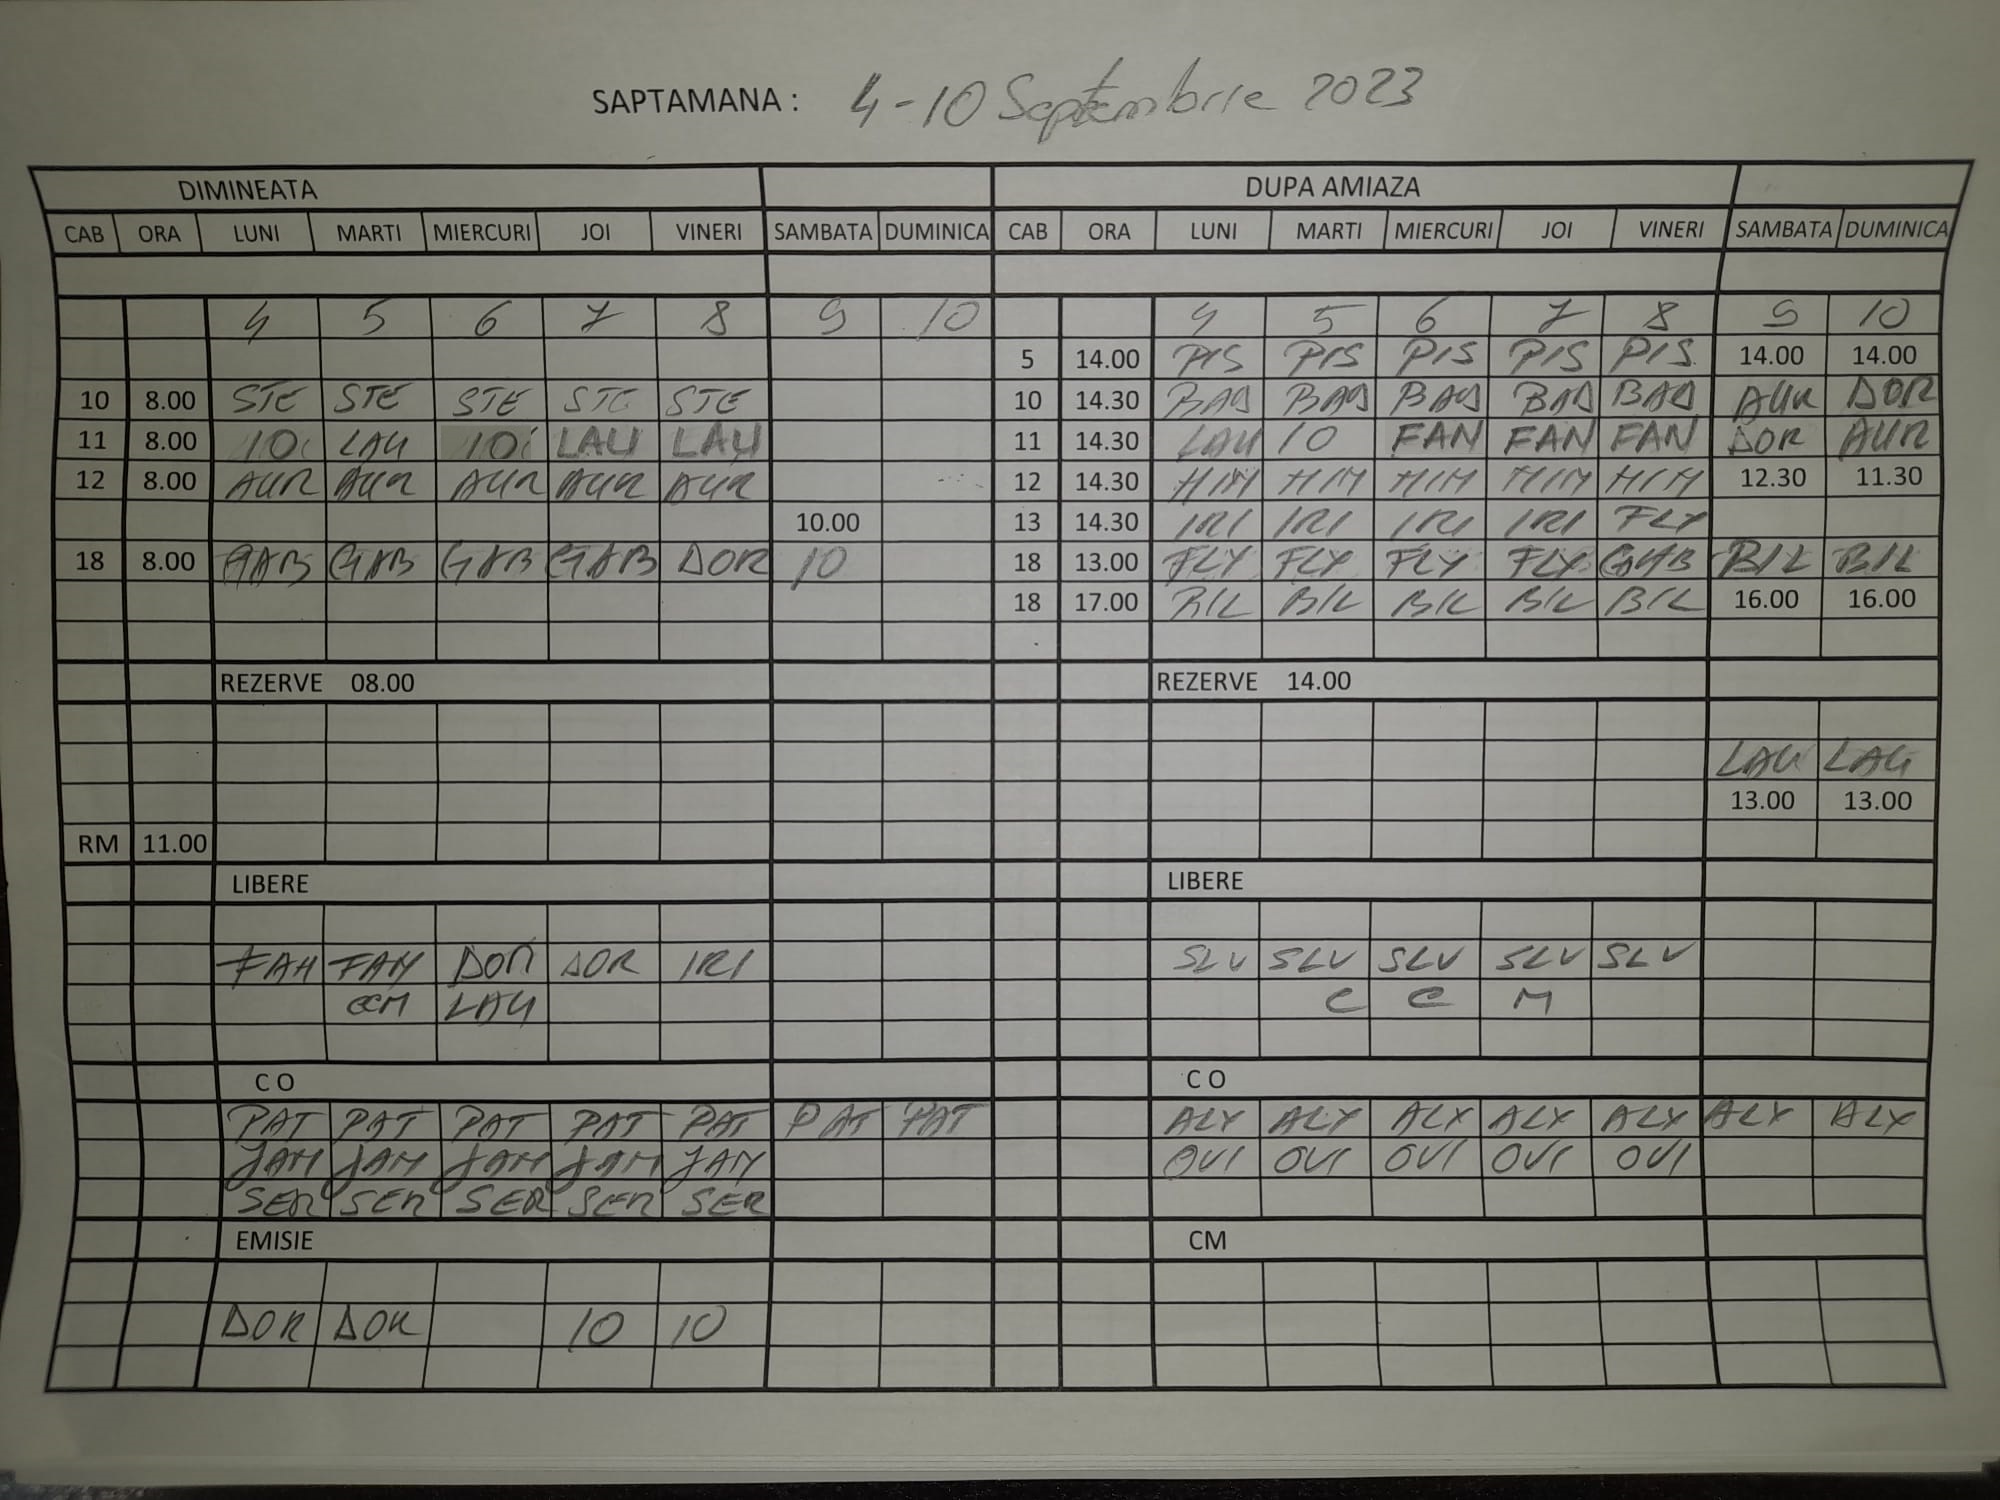 SAPTAMANA : 4-10 Septembrie 2023
DIMINEATA DUPA AMIAZA
CAB ORA LUNI MARTI MIERCURI JOI VINERI SAMBATA DUMINICA CAB ORA LUNI MARTI MIERCURI JOI VINERI SAMBATA DUMINICA
4 5 6 7 8 9 10 4 5 6 7 8 9 10
5 14.00 PIS PIS PIS PIS PIS 14.00 14.00
10 8.00 STE STE STE STE STE 10 14.30 BAD BAD BAD BAD BAD AUR DOR
11 8.00 LAU LAU LAU 11 14.30 LAU 10 FAN FAN FAN DOR AUR
12 8.00 AUR AUR AUR AUR AUR 12 14.30 MIM MIM MIM MIM MIM 12.30 11.30
10.00 13 14.30 IRI IRI IRI IRI FLY
18 8.00 GAB GAB GAB GAB DOR 10 18 13.00 FLY FLY FLY FLY GAB BIL BIL
18 17.00 BIL BIL BIL BIL BIL 16.00 16.00
REZERVE 08.00 REZERVE 14.00
LAU LAU
13.00 13.00
RM 11.00
LIBERE LIBERE
FAN FAN DOR DOR IRI SLV SLV SLV SLV SLV
LAU C C M
C O C O
PAT PAT PAT PAT PAT PAT PAT ALX ALX ALX ALX ALX ALX ALX
JAM JAM JAM JAM JAM OVI OVI OVI OVI OVI
SER SER SER SER SER
EMISIE CM
DOR DOR 10 10